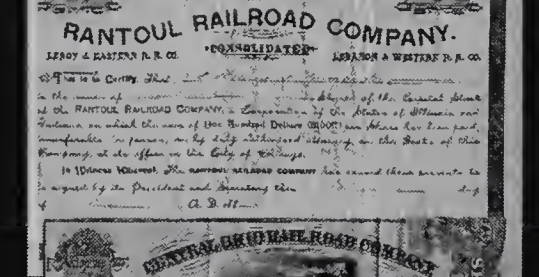 RANTOUL RAILROAD COMPANY.
LEROY & EASTERN R. R. CO. CONSOLIDATED LEBANON & WESTERN R. R. CO.
This is to Certify, That
in the name of Shares of the Capital Stock
of the RANTOUL RAILROAD COMPANY, a Corporation of the States of Illinois and
Indiana on which the sum of One Hundred Dollars ($100) per Share has been paid,
transferable in person, or by duly authorized attorney, on the Books of this
Company, at its office in the City of Chicago.
In Witness Whereof, The RANTOUL RAILROAD COMPANY has caused these presents to
be signed by its President and Secretary this day
of A. D. 18
CENTRAL OHIO RAILROAD COMPANY